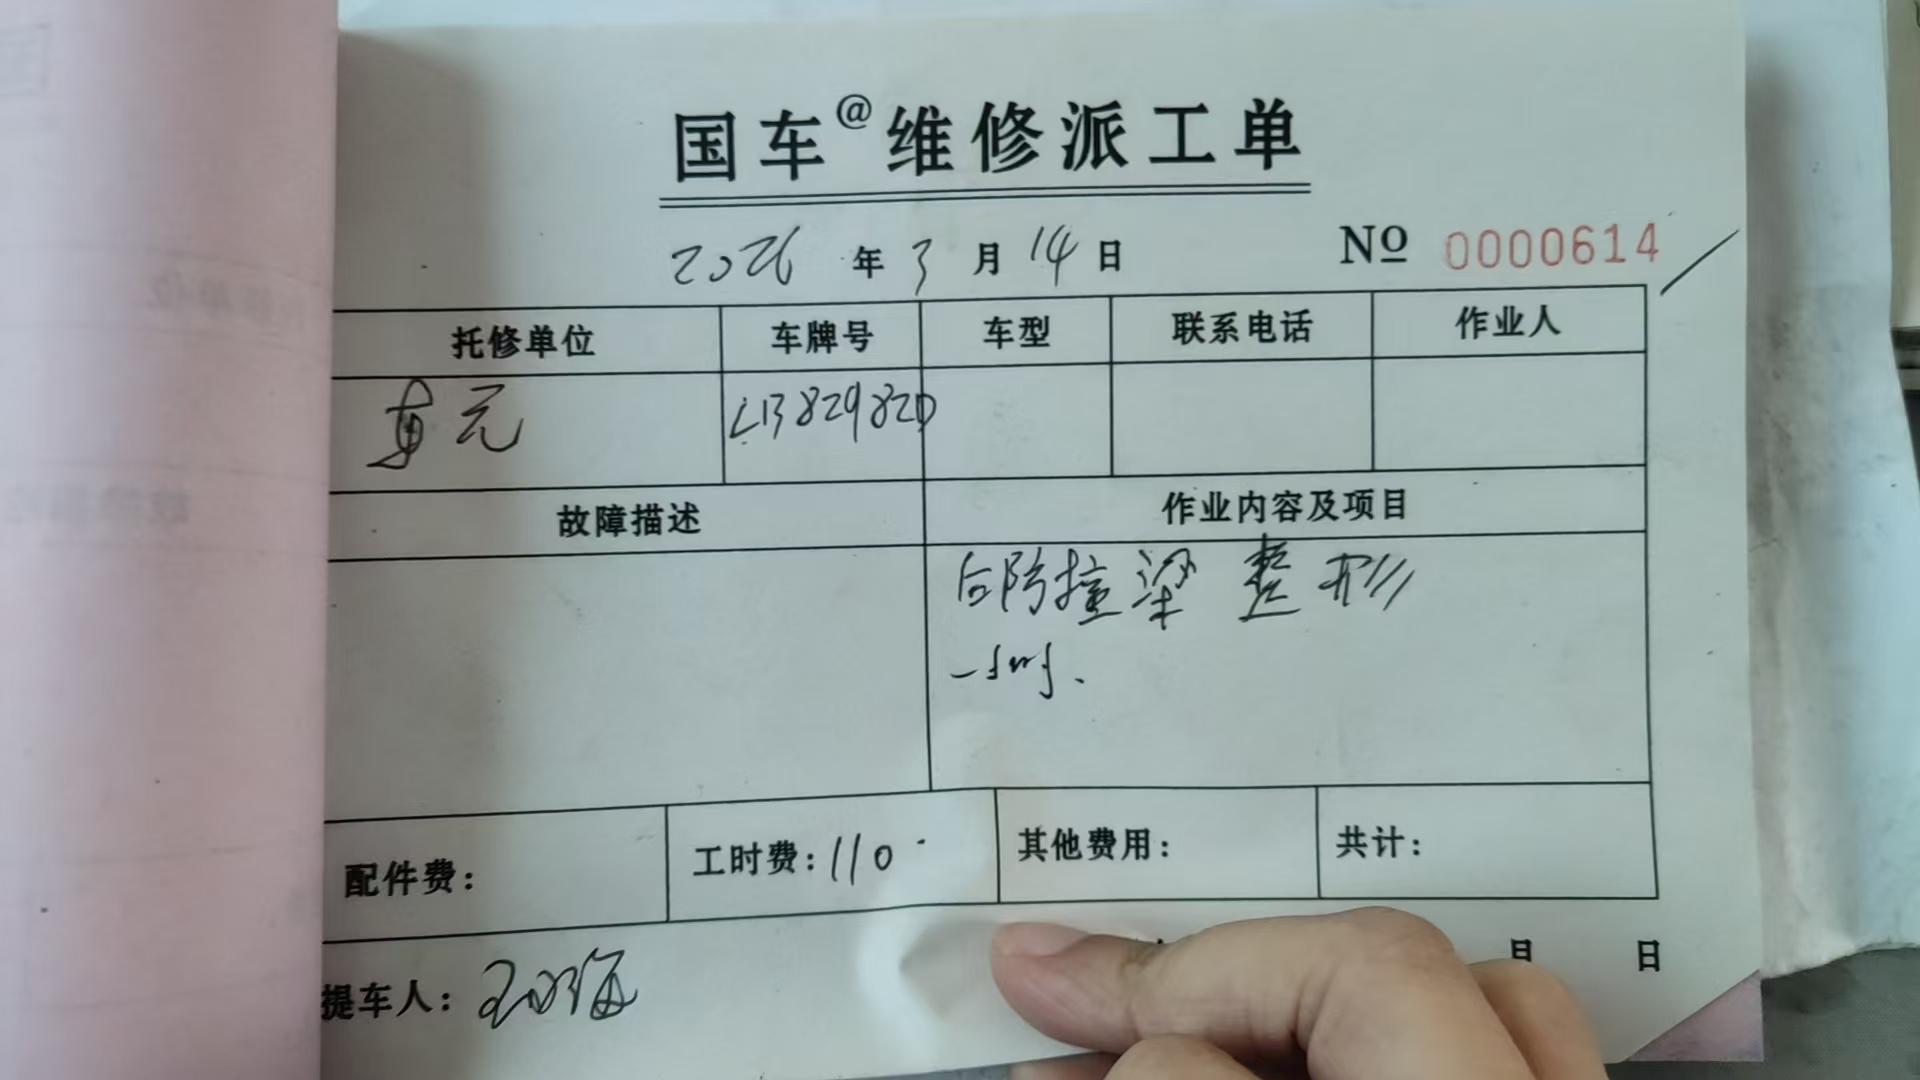 国车@维修派工单
2026 年 3 月 14 日 No 0000614
托修单位 车牌号 车型 联系电话 作业人
元 LB82982D
故障描述 作业内容及项目
后防撞梁 整形
配件费： 工时费：110 其他费用： 共计：
提车人： 月 日